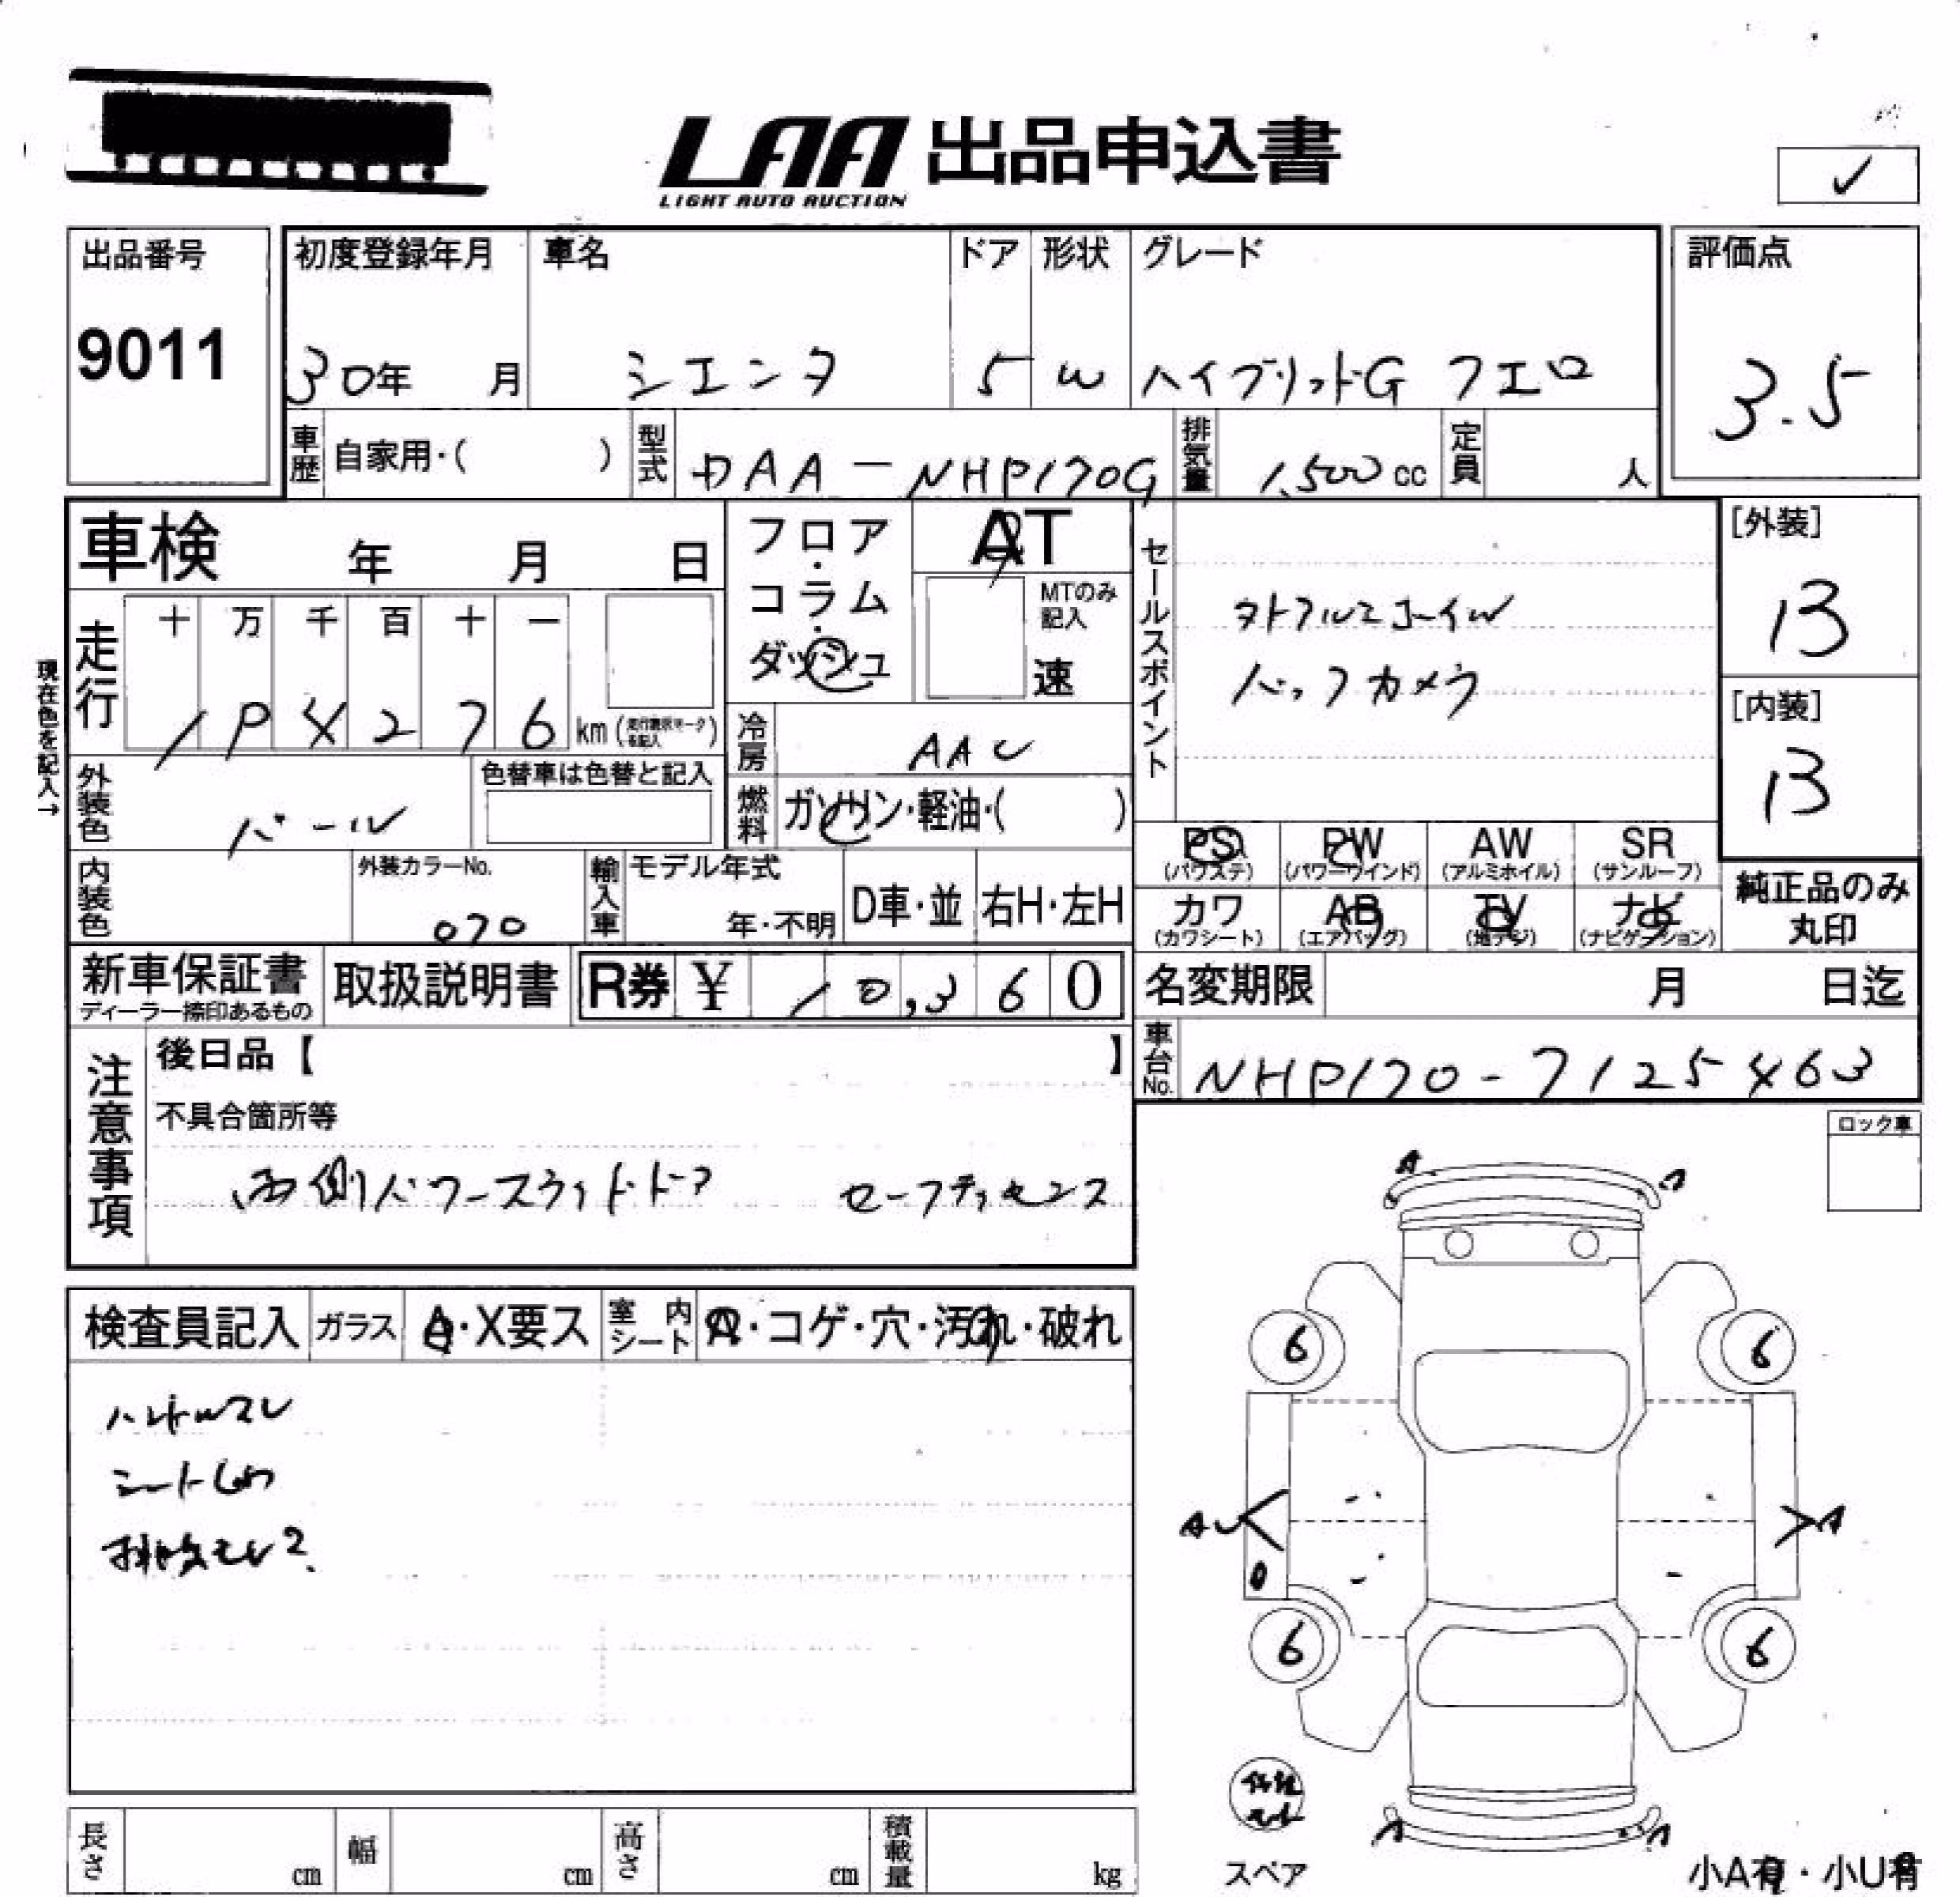 LAA 出品申込書
LIGHT AUTO AUCTION
✓
出品番号
9011
初度登録年月
30年 月
車名
シエンタ
ドア
5
形状
W
グレード
ハイブリッドG クエロ
評価点
3.5
車歴 自家用・( )
型式 DAA-NHP170G
排気量 1,500 cc
定員 人
車検 年 月 日
フロア・コラム・ダッシュ
AT
MTのみ記入
速
セールスポイント
バックカメラ
[外装]
B
[内装]
B
現在色を記入→
走行
十 万 千 百 十 一
4 2 7 6 km
冷房 AAC
外装色 パール
色替車は色替と記入
燃料 ガソリン・軽油・( )
PS (パワステ)
PW (パワーウインド)
AW (アルミホイル)
SR (サンルーフ)
カワ (カワシート)
AB (エアバッグ)
TV (地デジ)
ナビ (ナビゲーション)
純正品のみ
丸印
内装色
外装カラーNo.
070
輸入車
モデル年式
年・不明
D車・並
右H・左H
新車保証書
ディーラー捺印あるもの
取扱説明書
R券 ¥ 10,360
名変期限 月 日迄
車台No. NHP170-7125463
注意事項
後日品【 】
不具合箇所等
両側パワースライドドア セーフティセンス
ロック車
検査員記入
ガラス A・X要ス
室内シート A・コゲ・穴・汚れ・破れ
ハンドルスレ
シート
排気モレ?
A
6 6
AU
A
6 6
スペア
小A有・小U有
長さ cm
幅 cm
高さ cm
積載量 kg